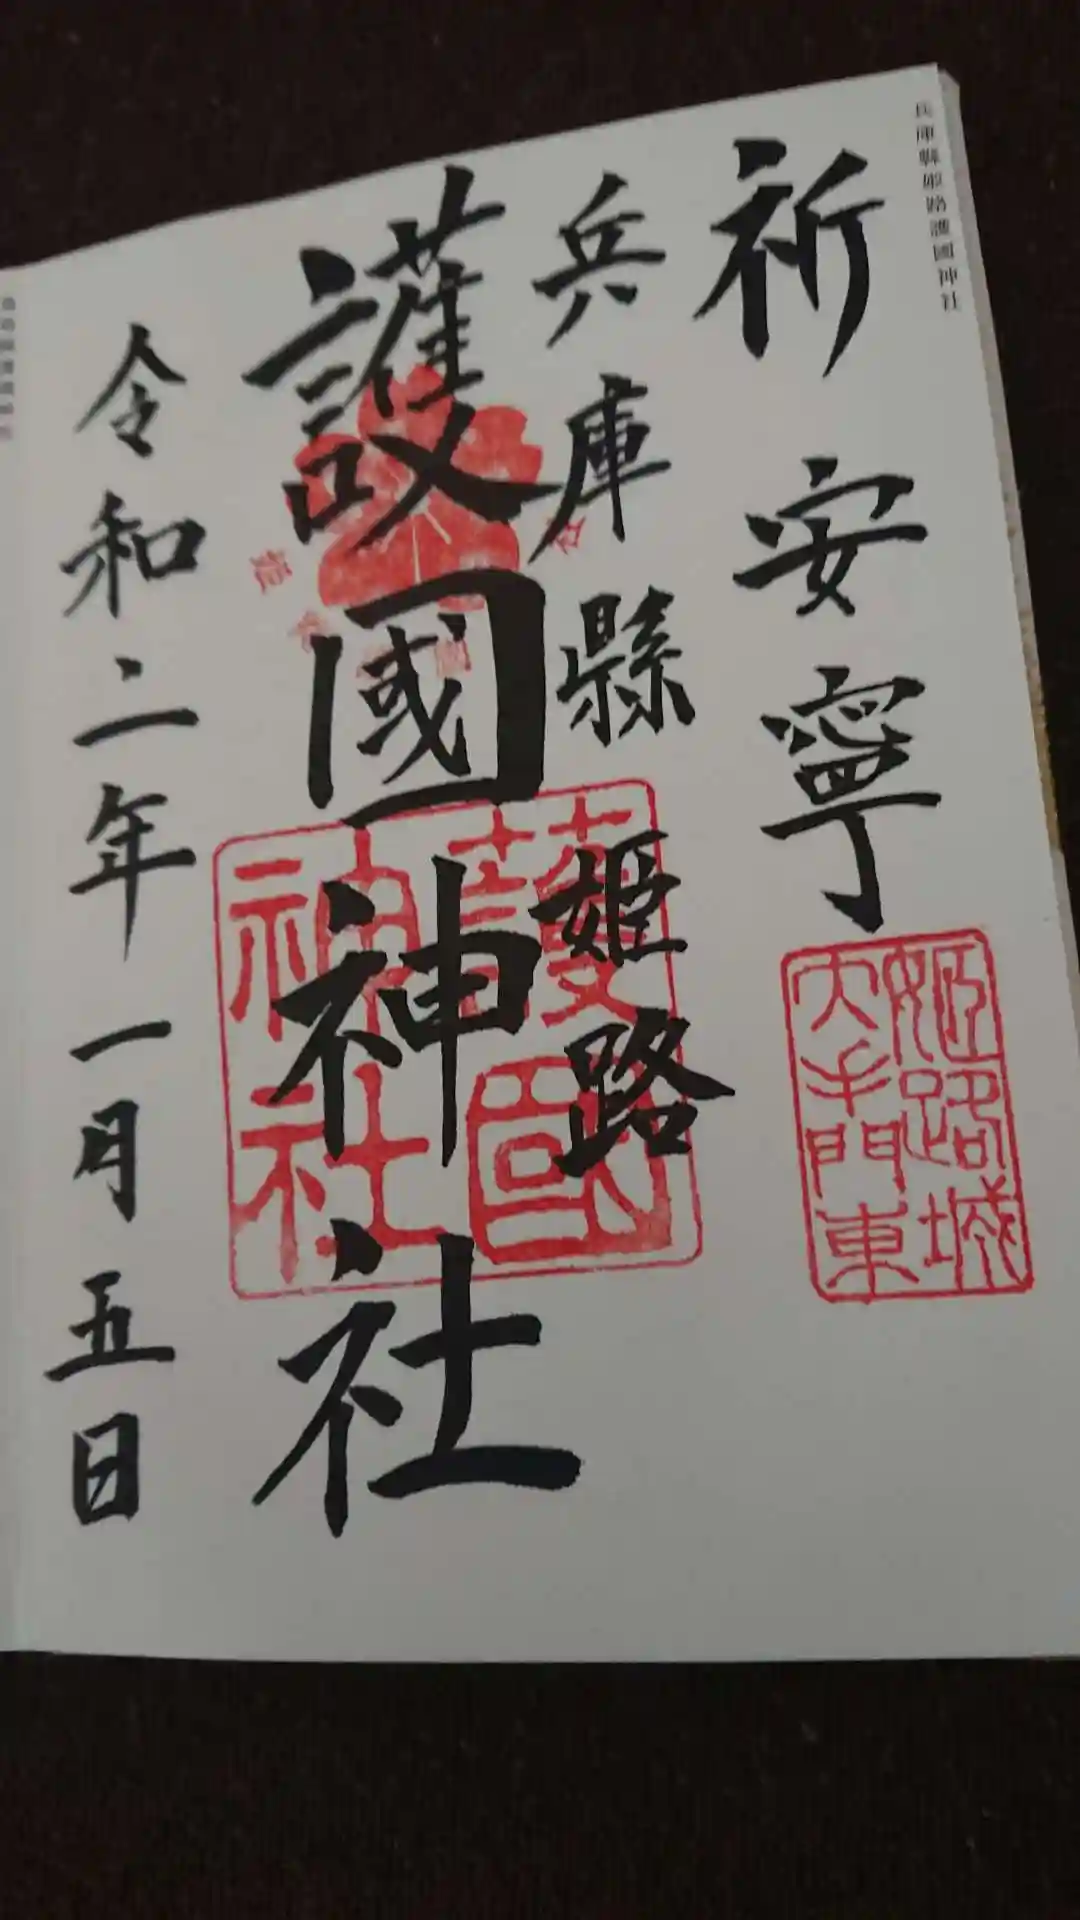 兵庫縣姫路護國神社
祈安寧
姫路城
大手門東
兵庫縣姫路
護國神社
護國
神社
令和二年一月五日